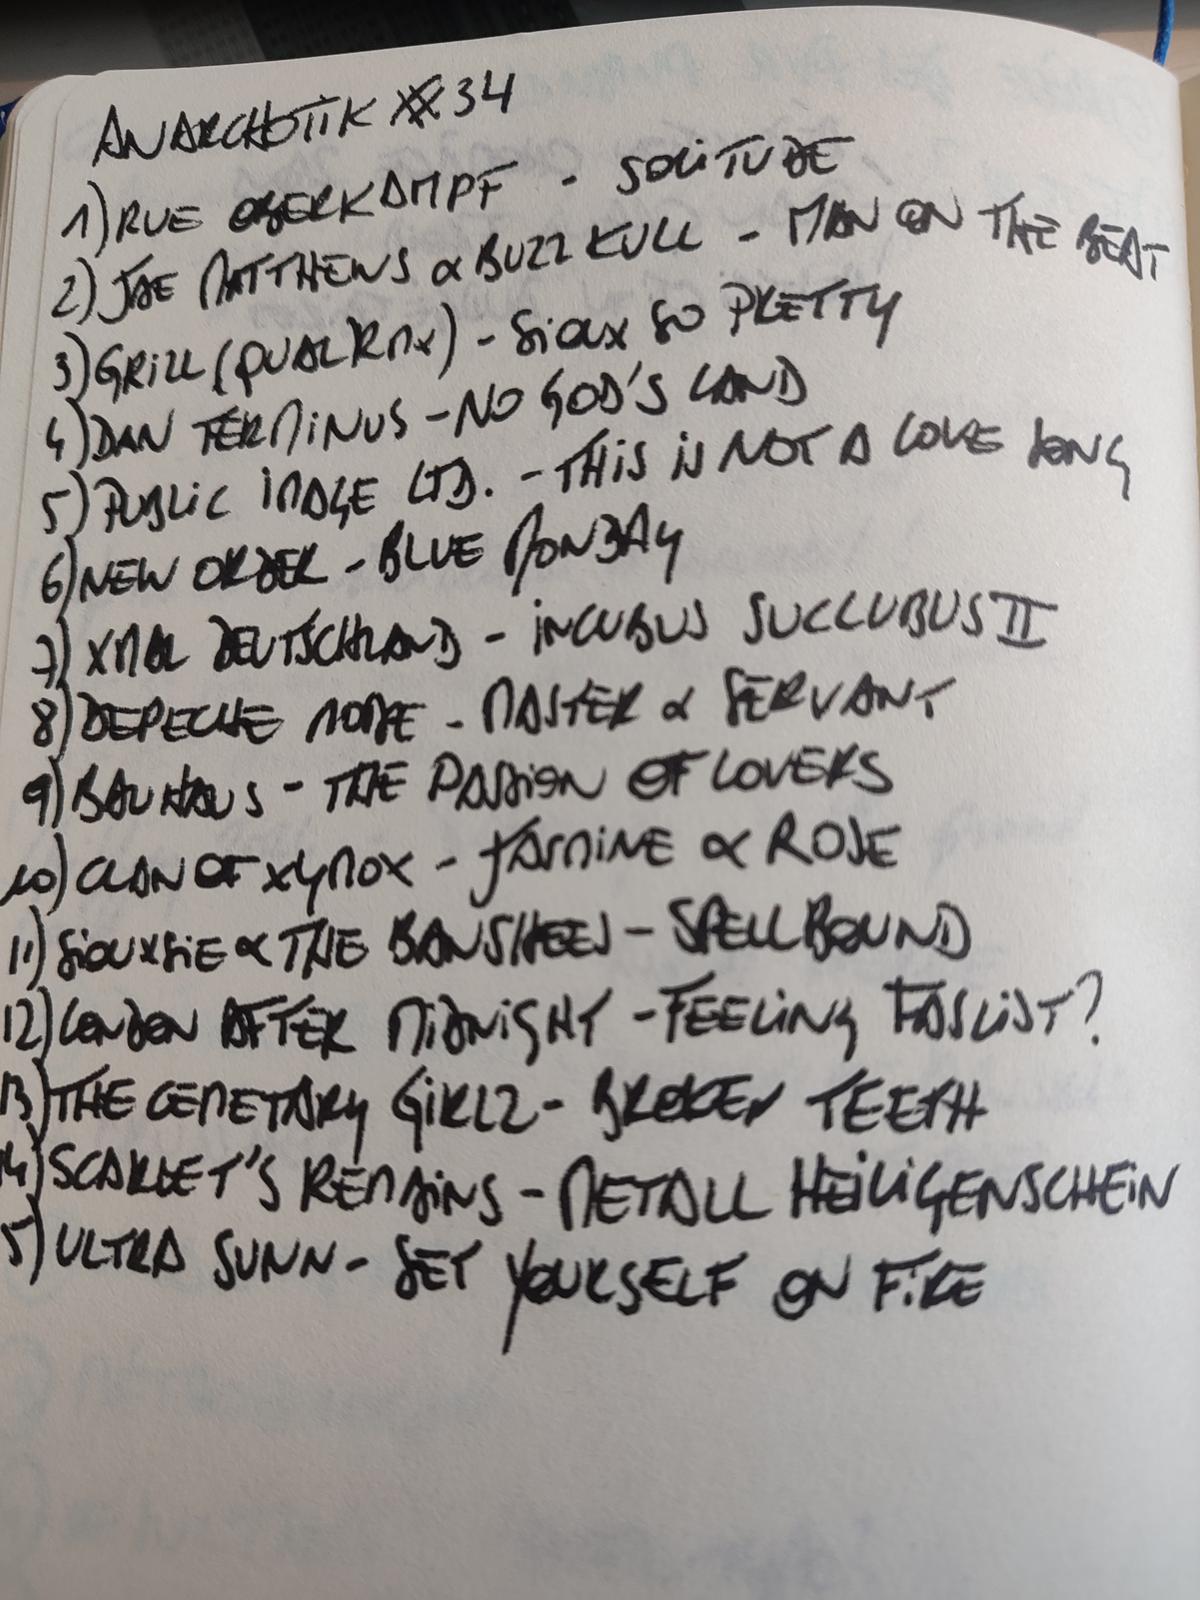 ANARCHOTIK #34
1) RUE OBERKAMPF - SOLITUDE
2) JAE MATTHEWS & BUZZ KULL - MAN ON THE BEAT
3) GRILL (QUAL RMX) - SIOUX SO PRETTY
4) DAN TERMINUS - NO GOD'S LAND
5) PUBLIC IMAGE LTD. - THIS IS NOT A LOVE SONG
6) NEW ORDER - BLUE MONDAY
7) XMAL DEUTSCHLAND - INCUBUS SUCCUBUS II
8) DEPECHE MODE - MASTER & SERVANT
9) BAUHAUS - THE PASSION OF LOVERS
10) CLAN OF XYMOX - JASMINE & ROSE
11) SIOUXSIE & THE BANSHEES - SPELLBOUND
12) LONDON AFTER MIDNIGHT - FEELING FASCIST?
13) THE CEMETARY GIRLZ - BROKEN TEETH
14) SCARLET'S REMAINS - METALL HEILIGENSCHEIN
5) ULTRA SUNN - SET YOURSELF ON FIRE